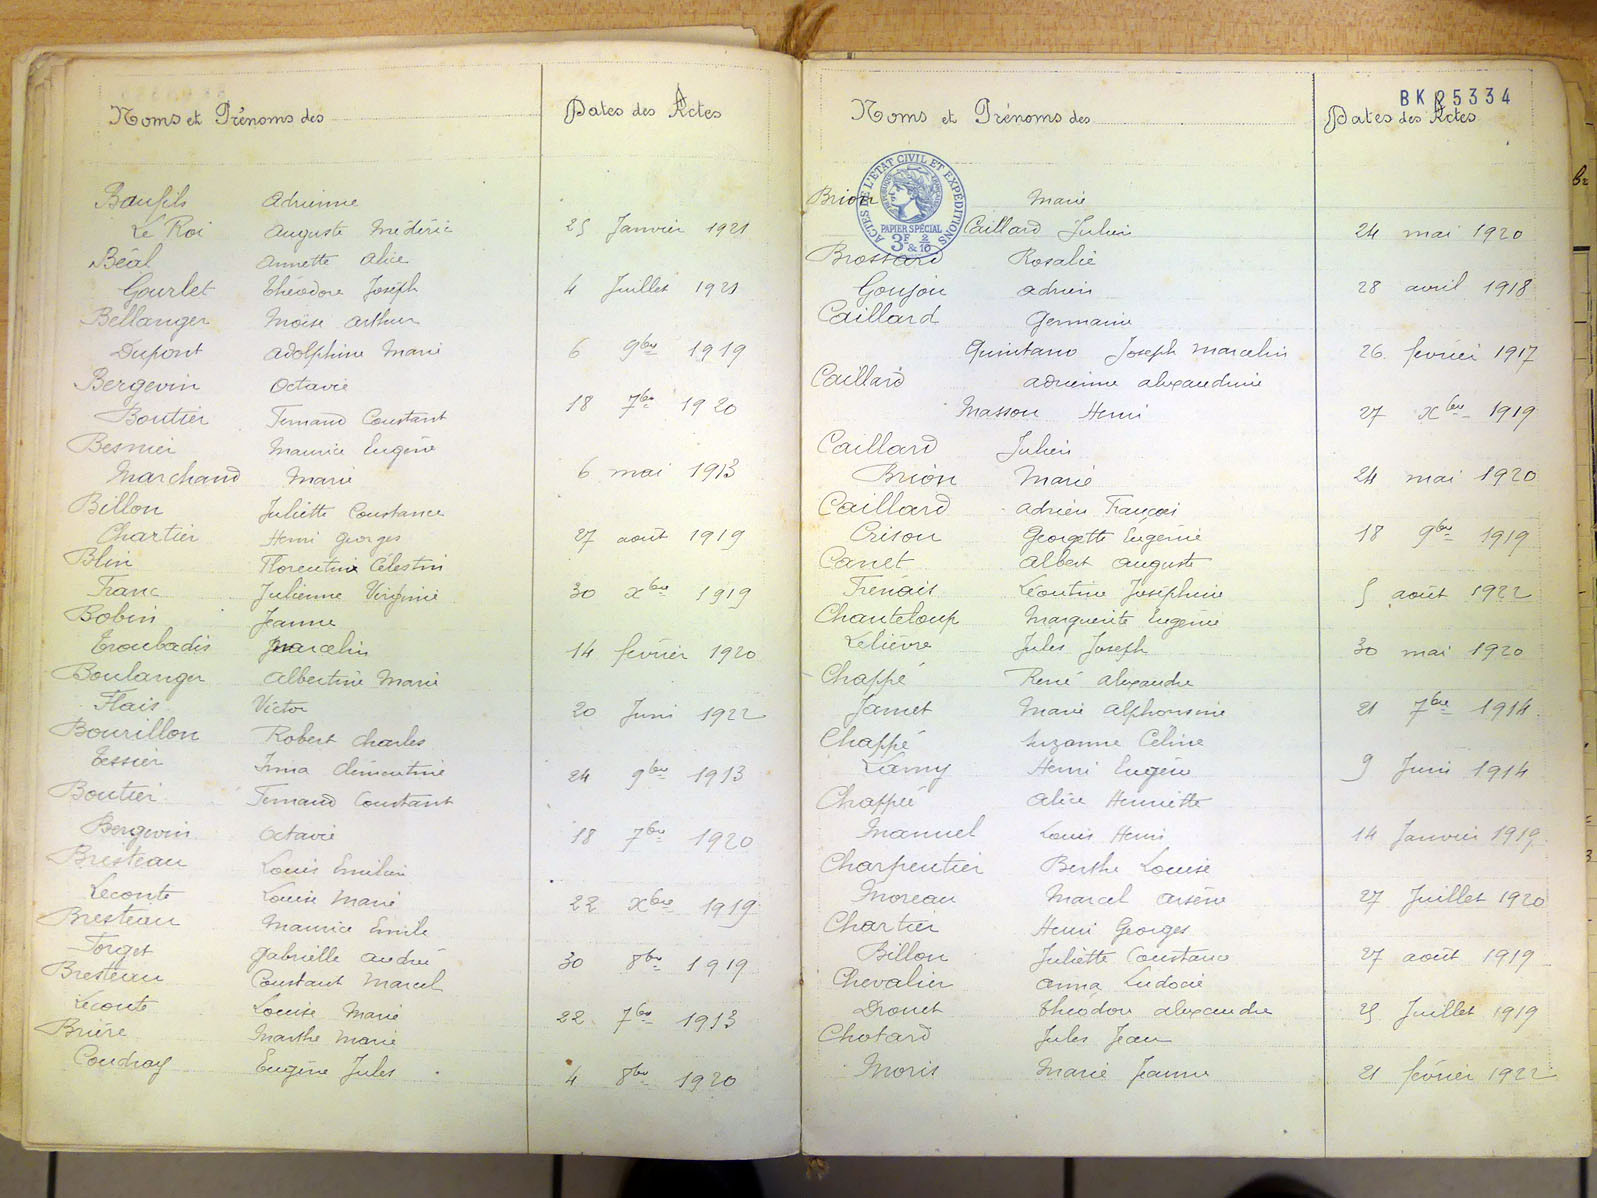 Noms et Prénoms des
Dates des Actes
Baufils Adrienne
Le Roi Auguste Médéric 25 Janvier 1921
Béal Annette Alice
Gourlet Théodore Joseph 4 Juillet 1921
Bellanger Moïse Arthur
Dupont Adolphine Marie 6 9bre 1919
Bergevin Octavie
Boutier Fernand Constant 18 7bre 1920
Besnier Maurice Eugène
Marchand Marie 6 mai 1913
Billon Juliette Constance
Chartier Henri Georges 27 août 1919
Blin Florentin Célestin
Franc Julienne Virginie 30 Xbre 1919
Bobin Jeanne
Troubadis Marcelin 14 février 1920
Boulanger Albertine Marie
Flais Victor 20 Juin 1922
Bourillon Robert Charles
Tessier Irma Clémentine 24 9bre 1913
Boutier Fernand Constant
Bergevin Octavie 18 7bre 1920
Bresteau Louis Emilien
Leconte Louise Marie 22 Xbre 1919
Bresteau Maurice Emile
Forget Gabrielle Andrée 30 8bre 1919
Bresteau Constant Marcel
Leconte Louise Marie 22 7bre 1913
Brière Marthe Marie
Coudray Eugène Jules 4 8bre 1920
BK 25334
Noms et Prénoms des
Dates des Actes
ACTES DE L'ÉTAT CIVIL ET EXPÉDITIONS
PAPIER SPÉCIAL
3F & 2/10
Brion Marie
Caillard Julien 24 mai 1920
Brossard Rosalie
Goujon Adrien 28 avril 1918
Caillard Germaine
Quintano Joseph Marcelin 26 février 1917
Caillard Adrienne Alexandrine
Masson Henri 27 Xbre 1919
Caillard Julien
Brion Marie 24 mai 1920
Caillard Adrien François
Crison Georgette Eugénie 18 9bre 1919
Canet Albert Auguste
Frénais Léontine Joséphine 5 août 1922
Chanteloup Marguerite Eugénie
Lelièvre Jules Joseph 30 mai 1920
Chappé René Alexandre
Jamet Marie Alphonsine 21 7bre 1914
Chappé Suzanne Céline
Lamy Henri Eugène 9 Juin 1914
Chappée Alice Henriette
Manuel Louis Henri 14 Janvier 1919
Charpentier Berthe Louise
Moreau Marcel Arsène 27 Juillet 1920
Chartier Henri Georges
Billon Juliette Constance 27 août 1919
Chevalier Anna Ludocie
Drouet Théodore Alexandre 25 Juillet 1919
Chotard Jules Jean
Moris Marie Jeanne 21 février 1922